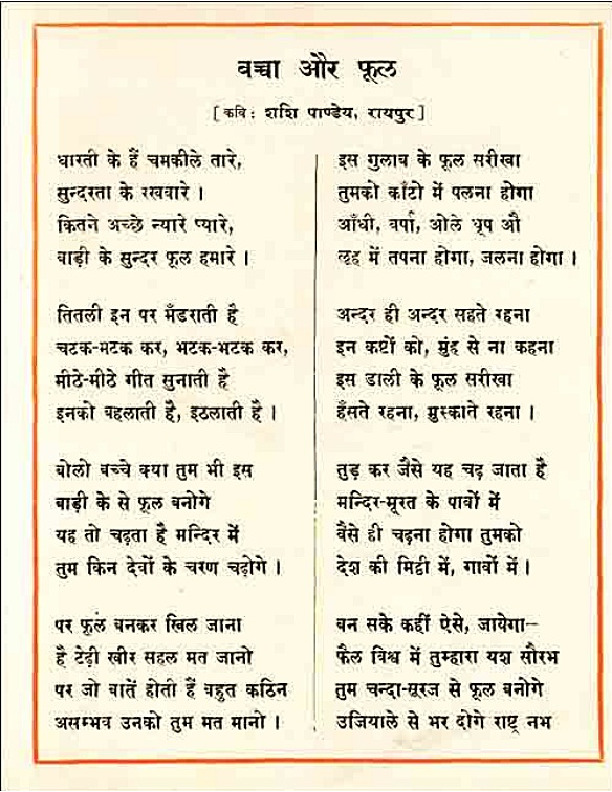 बच्चा और फूल
[ कवि : शशि पाण्डेय, रायपुर ]
धारती के हैं चमकीले तारे,
सुन्दरता के रखवारे ।
कितने अच्छे न्यारे प्यारे,
बाड़ी के सुन्दर फूल हमारे ।
तितली इन पर मँडराती है
चटक-मटक कर, भटक-भटक कर,
मीठे-मीठे गीत सुनाती है
इनको बहलाती है, इठलाती है ।
बोलो बच्चे क्या तुम भी इस
बाड़ी के से फूल बनोगे
यह तो चढ़ता है मन्दिर में
तुम किन देवों के चरण चढ़ोगे ।
पर फूल बनकर खिल जाना
है टेढ़ी खीर सहल मत जानो
पर जो बातें होती हैं बहुत कठिन
असम्भव उनको तुम मत मानो ।
इस गुलाब के फूल सरीखा
तुमको काँटो में पलना होगा
आँधी, वर्षा, ओले धूप औ
लूह में तपना होगा, जलना होगा ।
अन्दर ही अन्दर सहते रहना
इन कष्टों को, मुंह से ना कहना
इस डाली के फूल सरीखा
हँसते रहना, मुस्काते रहना ।
तुड़ कर जैसे यह चढ़ जाता है
मन्दिर-मूरत के पावों में
वैसे ही चढ़ना होगा तुमको
देश की मिट्टी में, गावों में ।
बन सके कहीं ऐसे, जायेगा—
फैल विश्व में तुम्हारा यश सौरभ
तुम चन्दा-सूरज से फूल बनोगे
उजियाले से भर दोगे राष्ट्र नभ